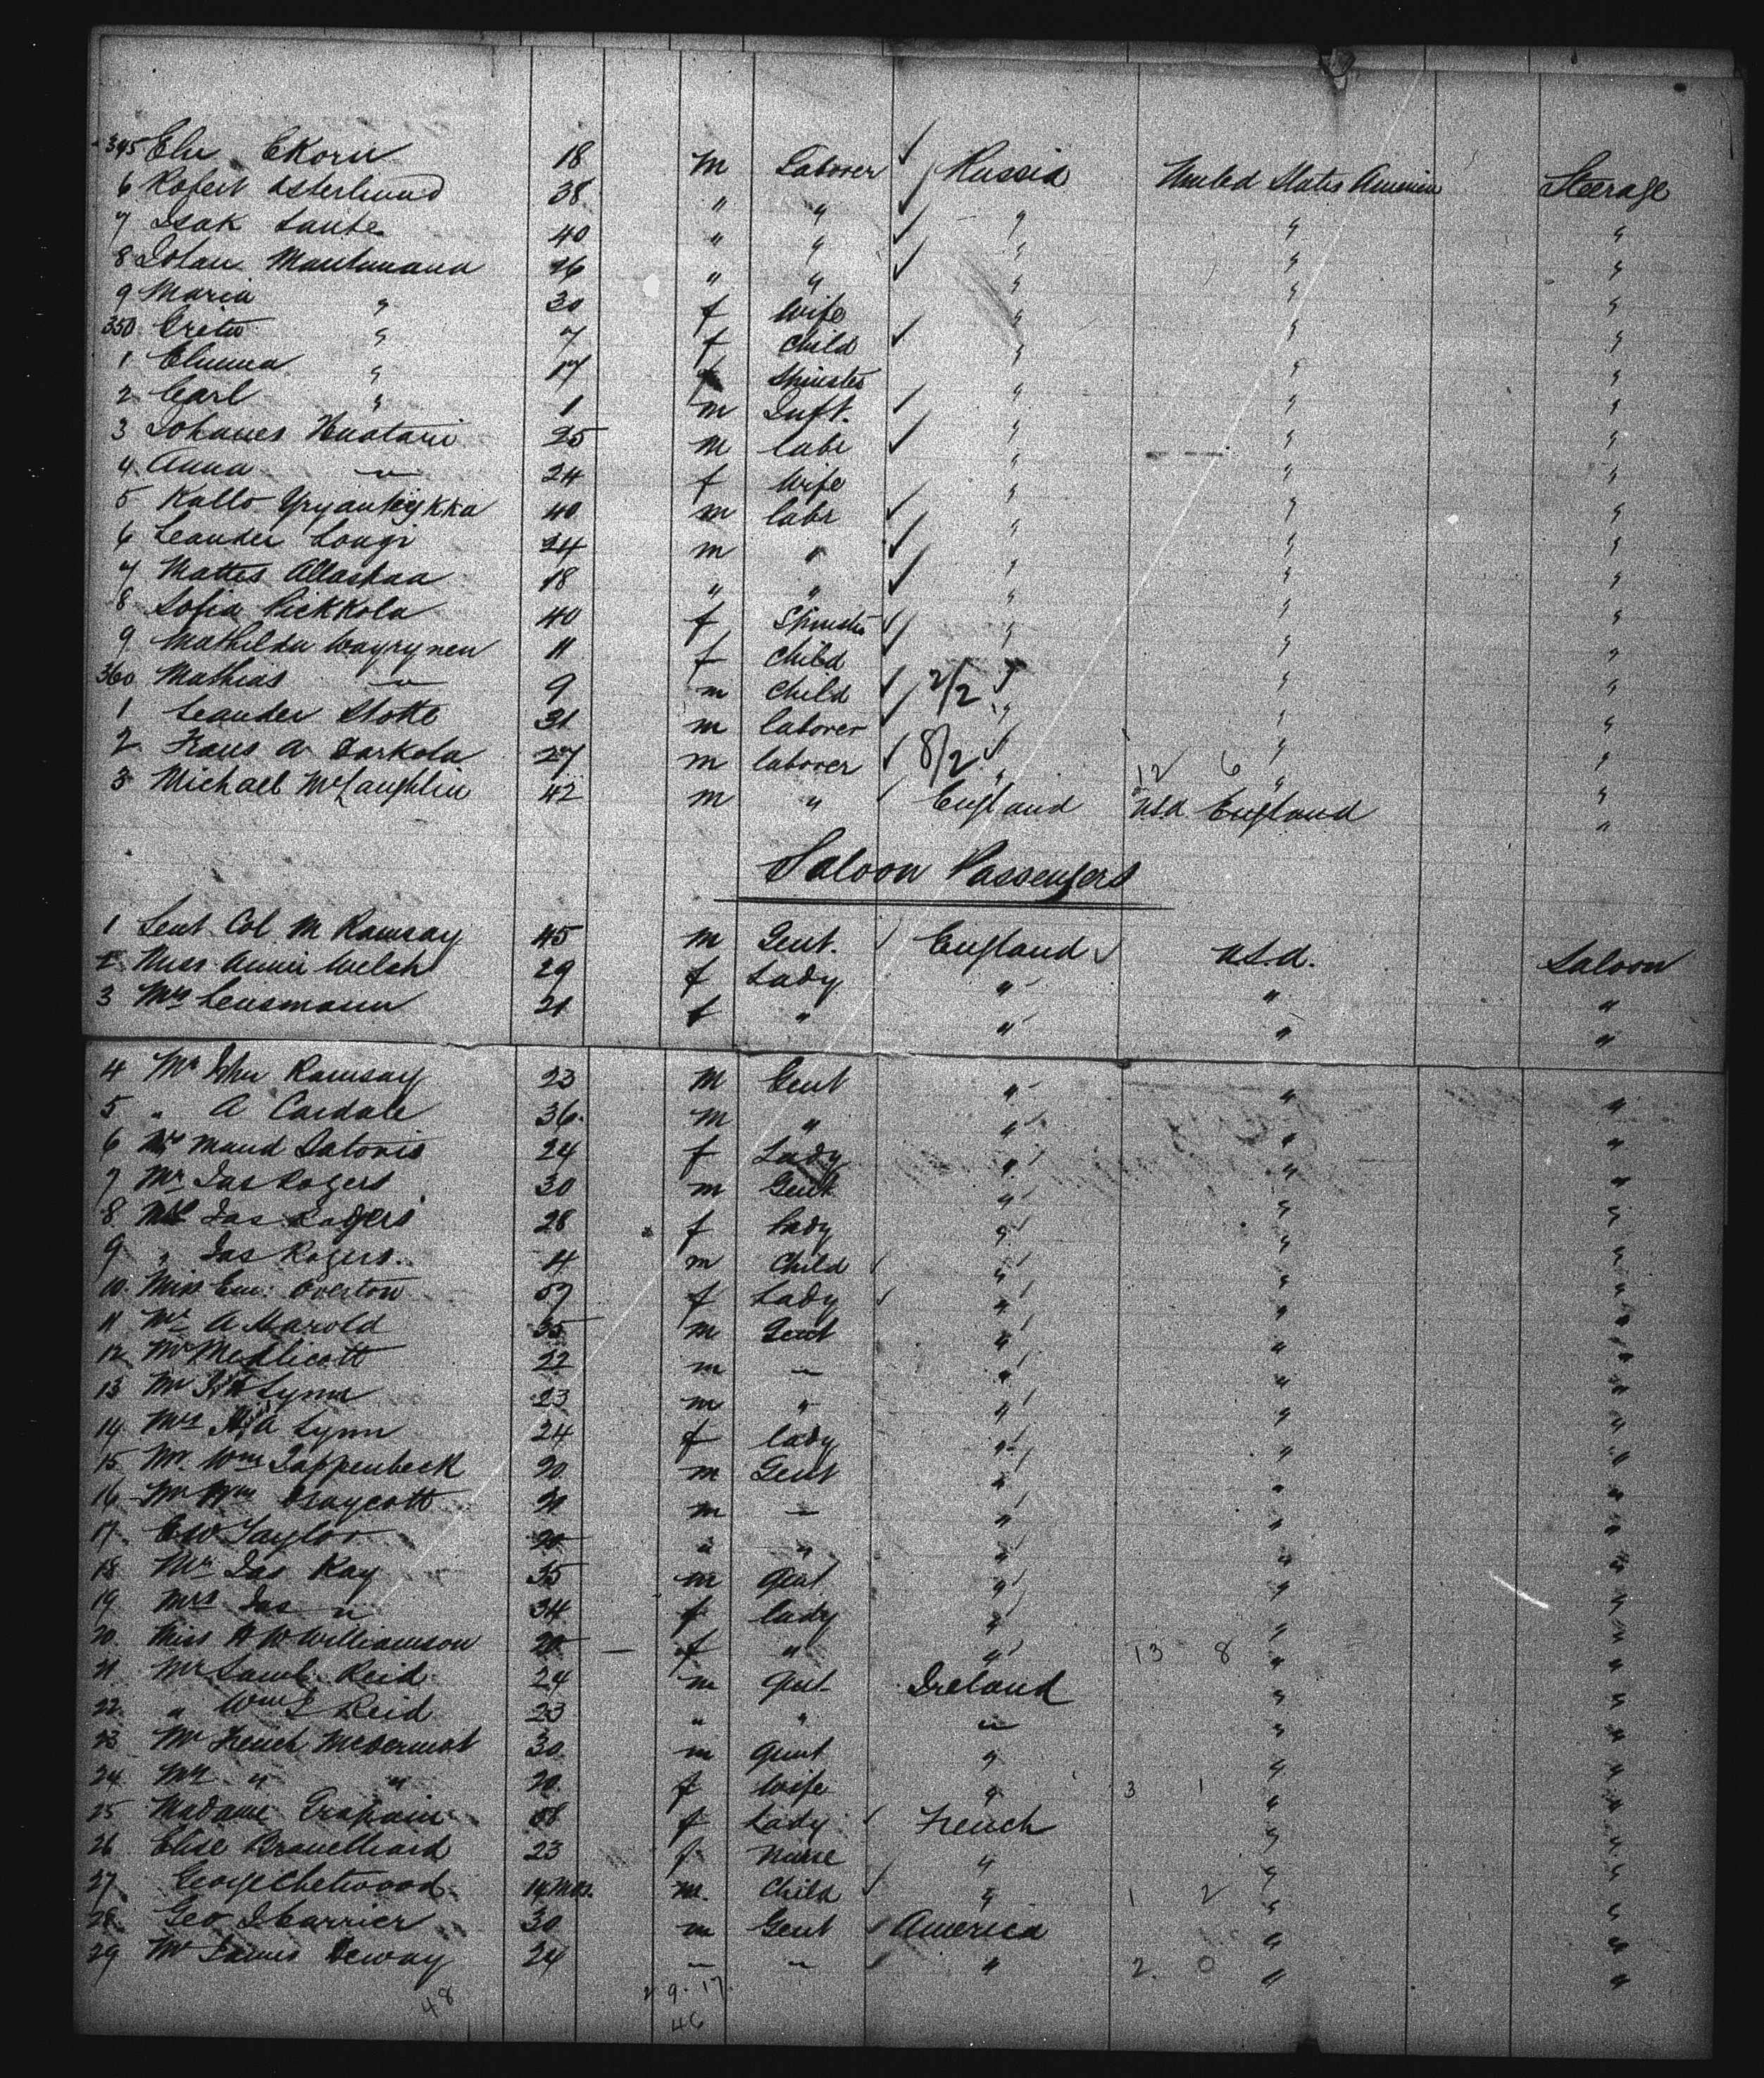 345 Ekoru 18 m Laborer ✓ Russia United States America Steerage
6 Robert Osterlund 38 " " ✓ " " "
7 Isak 40 " " ✓ " " "
8 Johan 26 " " ✓ " " "
9 Maria " 30 f Wife " " "
350 " 7 f Child ✓ " " "
1 " 17 f Spinster " " "
2 Carl " 1 m Inft. ✓ " " "
3 Johanes 25 m labr ✓ " " "
4 Anna " 24 f Wife " " "
5 Kallo 40 m labr ✓ " " "
6 Leander 24 m " ✓ " " "
7 Mattes 18 " " ✓ " " "
8 Sofia Pickkola 40 f Spinster ✓ " " "
9 Mathilda Wayrynen 11 f Child " " "
360 Mathias " 9 m Child ✓ 2/2 " " "
1 Leander Slotte 31 m laborer ✓ " " "
2 Frans A 27 m laborer ✓ 8/2 " 12 6 " "
3 Michael McLaughlin 42 m " England USA England "
Saloon Passengers
1 Leut Col M Ramsay 45 m Gent. England U.S.A. Saloon
2 Miss Annie Welch 29 f Lady " " "
3 Mrs Lensmann 21 f " " " "
4 Mr John Ramsay 23 m Gent " " "
5 " A Cardale 36 m " " " "
6 Maud 24 f Lady " " "
7 Mr Jas Rogers 30 m Gent " " "
8 Mrs Jas Rogers 28 f Lady " " "
9 " Jas Rogers 4 m Child " " "
10 Miss Overton f Lady " " "
11 Mr A Marold 35 m Gent " " "
12 Mr Medlicott 22 m " " " "
13 Mr Lynn 23 m " " " "
14 Mrs A Lynn 24 f lady " " "
15 Mr. Wm Tappenbeck 20 m Gent " " "
16 Mr Wm Draycott m " " " "
17 E W Taylor 20 " " " " "
18 Mr Jas Kay 35 m Gent " " "
19 Mrs Jas " 34 f lady " " "
20 Miss H W Williamson 20 f " " 13 8 " "
21 Mr Saml Reid 24 m Gent Ireland " "
22 " Wm J Reid 23 " " " " "
23 Mr French McDermot 30 m Gent " " "
24 Mrs " " 20 f Wife " 3 1 " "
25 Madame 58 f Lady French " "
26 Elise 23 f Nurse " " "
27 George Chetwood 14 mos. m. Child ✓ " 1 2 " "
28 Geo J Carrier 30 m Gent America " "
29 Mr James Deway 24 " " " 2. 0 " "
48 2 9. 17.
46